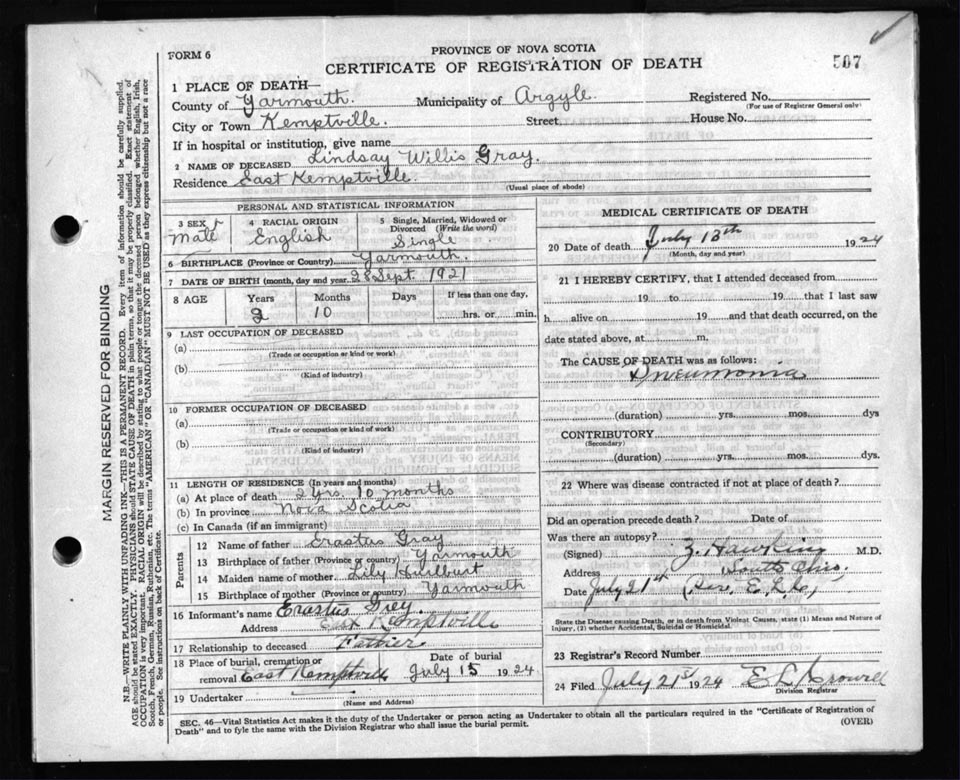 FORM 6
PROVINCE OF NOVA SCOTIA
CERTIFICATE OF REGISTRATION OF DEATH
507
1 PLACE OF DEATH—
County of Yarmouth. Municipality of Argyle. Registered No.
(For use of Registrar General only)
City or Town Kemptville. Street House No.
If in hospital or institution, give name
2 NAME OF DECEASED Lindsay Willis Gray.
Residence East Kemptville.
(Usual place of abode)
PERSONAL AND STATISTICAL INFORMATION
3 SEX Male
4 RACIAL ORIGIN English
5 Single, Married, Widowed or Divorced (Write the word) Single
6 BIRTHPLACE (Province or Country) Yarmouth.
7 DATE OF BIRTH (month, day and year) Sept. 1921
8 AGE Years Months Days If less than one day,
2 10 hrs. or min.
9 LAST OCCUPATION OF DECEASED
(a)
(Trade or occupation or kind or work)
(b)
(Kind of industry)
10 FORMER OCCUPATION OF DECEASED
(a)
(Trade or occupation or kind of work)
(b)
(Kind of industry)
11 LENGTH OF RESIDENCE (In years and months)
(a) At place of death 2 yrs. 10 months
(b) In province Nova Scotia
(c) In Canada (if an immigrant)
Parents
12 Name of father Erastus Gray
13 Birthplace of father (Province or country) Yarmouth
14 Maiden name of mother Lily Hurlburt
15 Birthplace of mother (Province or country) Yarmouth
16 Informant's name Erastus Grey.
Address East Kemptville
17 Relationship to deceased Father
18 Place of burial, cremation or removal East Kemptville Date of burial July 15 1924
19 Undertaker
(Name and Address)
MEDICAL CERTIFICATE OF DEATH
20 Date of death July 13th 1924
(Month, day and year)
21 I HEREBY CERTIFY, that I attended deceased from
19 to 19 that I last saw
h alive on 19 and that death occurred, on the
date stated above, at m.
The CAUSE OF DEATH was as follows:
Pneumonia
(duration) yrs. mos. dys
CONTRIBUTORY
(Secondary)
(duration) yrs. mos. dys.
22 Where was disease contracted if not at place of death?
Did an operation precede death? Date of
Was there an autopsy?
(Signed) Z. Hawkins M.D.
Address South Ohio.
Date July 21st (Per. E.L.C.)
State the Disease causing Death, or in death from Violent Causes, state (1) Means and Nature of Injury, (2) whether Accidental, Suicidal or Homicidal.
23 Registrar's Record Number
24 Filed July 21st 1924 E L Crowell
Division Registrar
SEC. 46—Vital Statistics Act makes it the duty of the Undertaker or person acting as Undertaker to obtain all the particulars required in the "Certificate of Registration of
Death" and to fyle the same with the Division Registrar who shall issue the burial permit. (OVER)
MARGIN RESERVED FOR BINDING
N.B.—WRITE PLAINLY WITH UNFADING INK—THIS IS A PERMANENT RECORD. Every item of information should be carefully supplied.
AGE should be stated EXACTLY. PHYSICIANS should STATE CAUSE OF DEATH in plain terms, so that it may be properly classified. Exact statement of
OCCUPATION is very important. RACIAL ORIGIN will be described by stating to what people or tongue the deceased person belonged whether English, Irish,
Scotch, French, German, Russian, Ruthenian, etc. The terms "AMERICAN" OR "CANADIAN" MUST NOT BE USED as they express citizenship but not a race
or people. See instructions on back of Certificate.